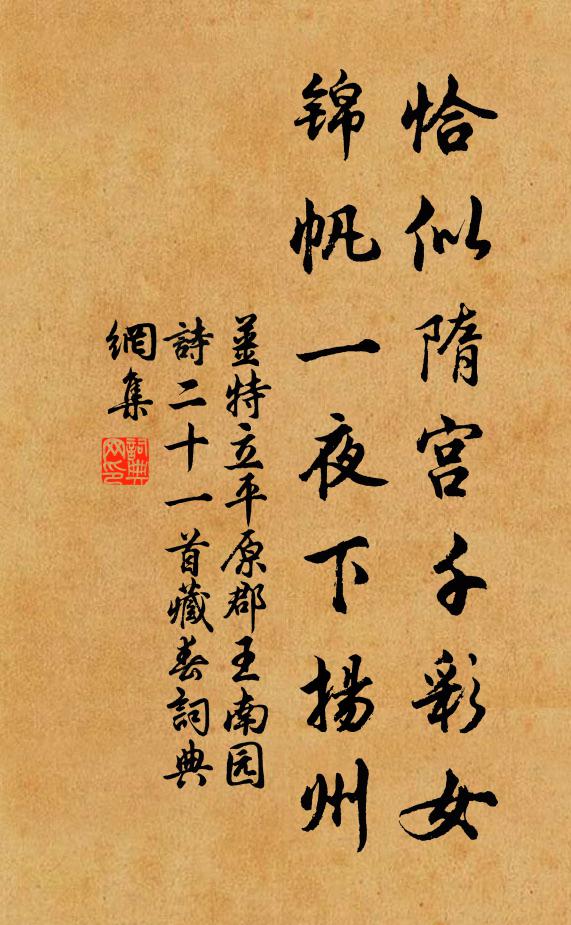 恰似隋宫千彩女
锦帆一夜下揚州
姜特立平原郡王南园
詩二十一首藏春詞典
網集
詞典网印